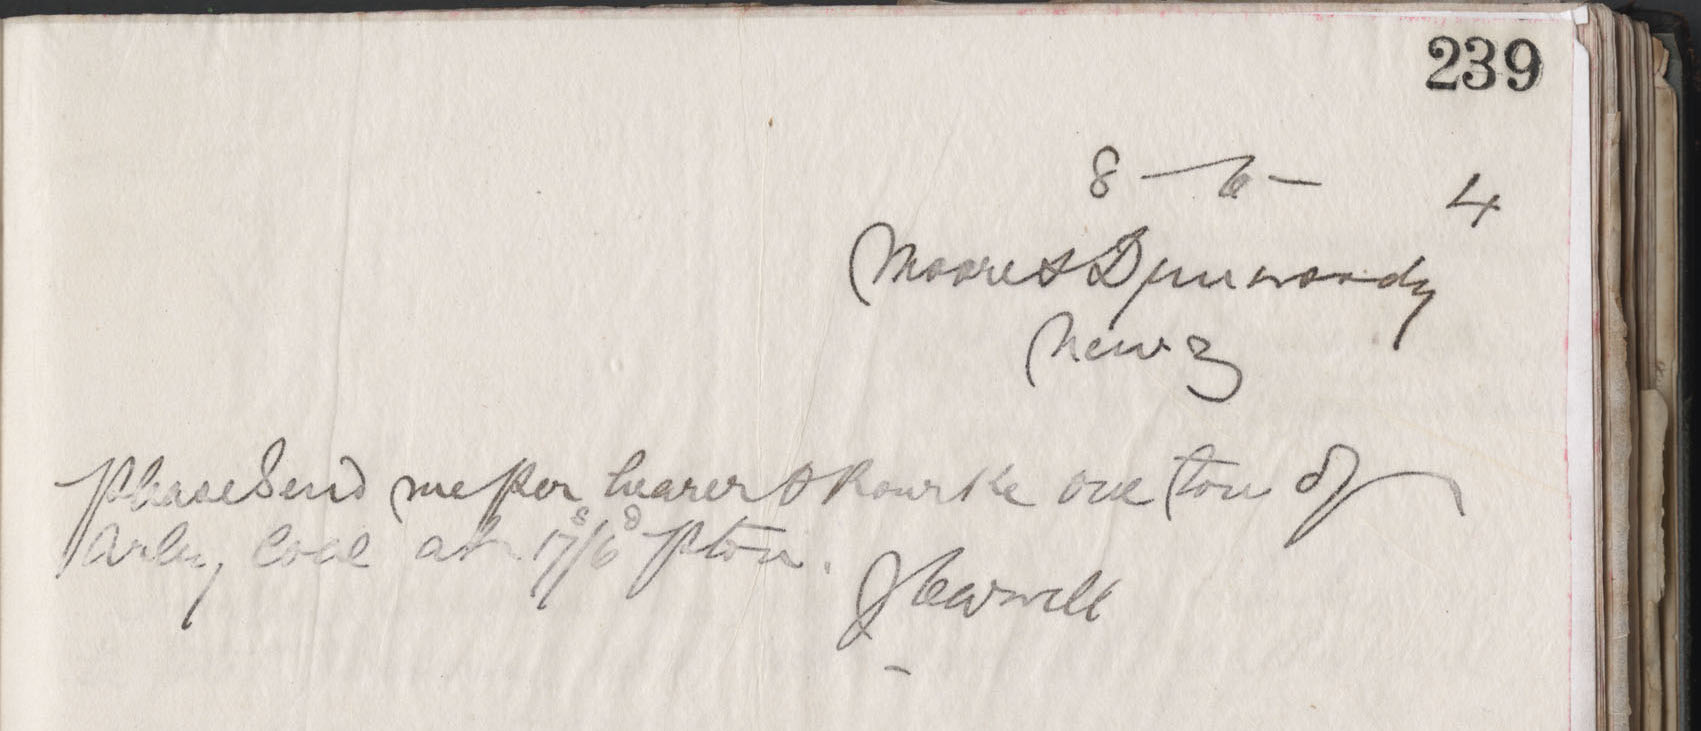 239
8 - 6 - 4
Moore & Dunwoody
Newry
Please Send me per bearer O Rourke one ton of
Arley Coal at 17s/6d p ton.